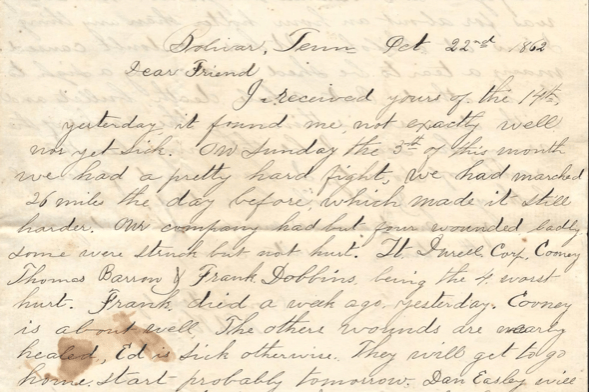 Bolivar, Tenn Oct 22nd 1862
Dear Friend
I received yours of the 14th,
yesterday, it found me, not exactly well
nor yet sick. On Sunday the 5th of this month
we had a pretty hard fight, we had marched
26 miles the day before, which made it still
harder. Our company had but four wounded badly,
some were struck but not hurt. Lt. Durell Corp. Cooney
Thomas Barron & Frank Dobbins, being the 4 worst
hurt. Frank died a week ago yesterday. Cooney
is about well, The others wounds are nearly
healed, Ed is sick otherwise. They will get to go
home, start probably tomorrow. Dan Easley will